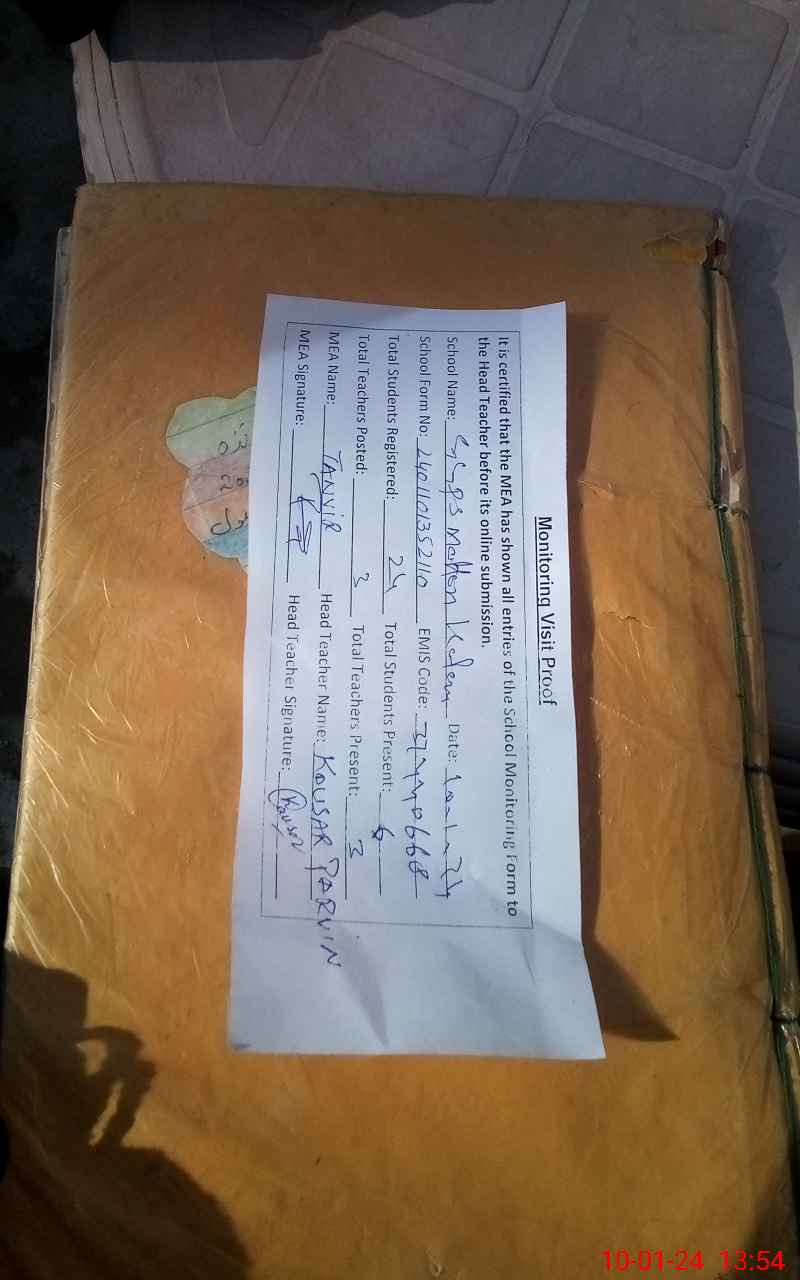 Monitoring Visit Proof
It is certified that the MEA has shown all entries of the School Monitoring Form to
the Head Teacher before its online submission.
School Name: GGPS Date: 10-1-24
School Form No: 2401101352110 EMIS Code:
Total Students Registered: 24 Total Students Present: 6
Total Teachers Posted: 3 Total Teachers Present: 3
MEA Name: TANVIR Head Teacher Name: KOUSAR PARVIN
MEA Signature: Head Teacher Signature: Kousar
10-01-24 13:54